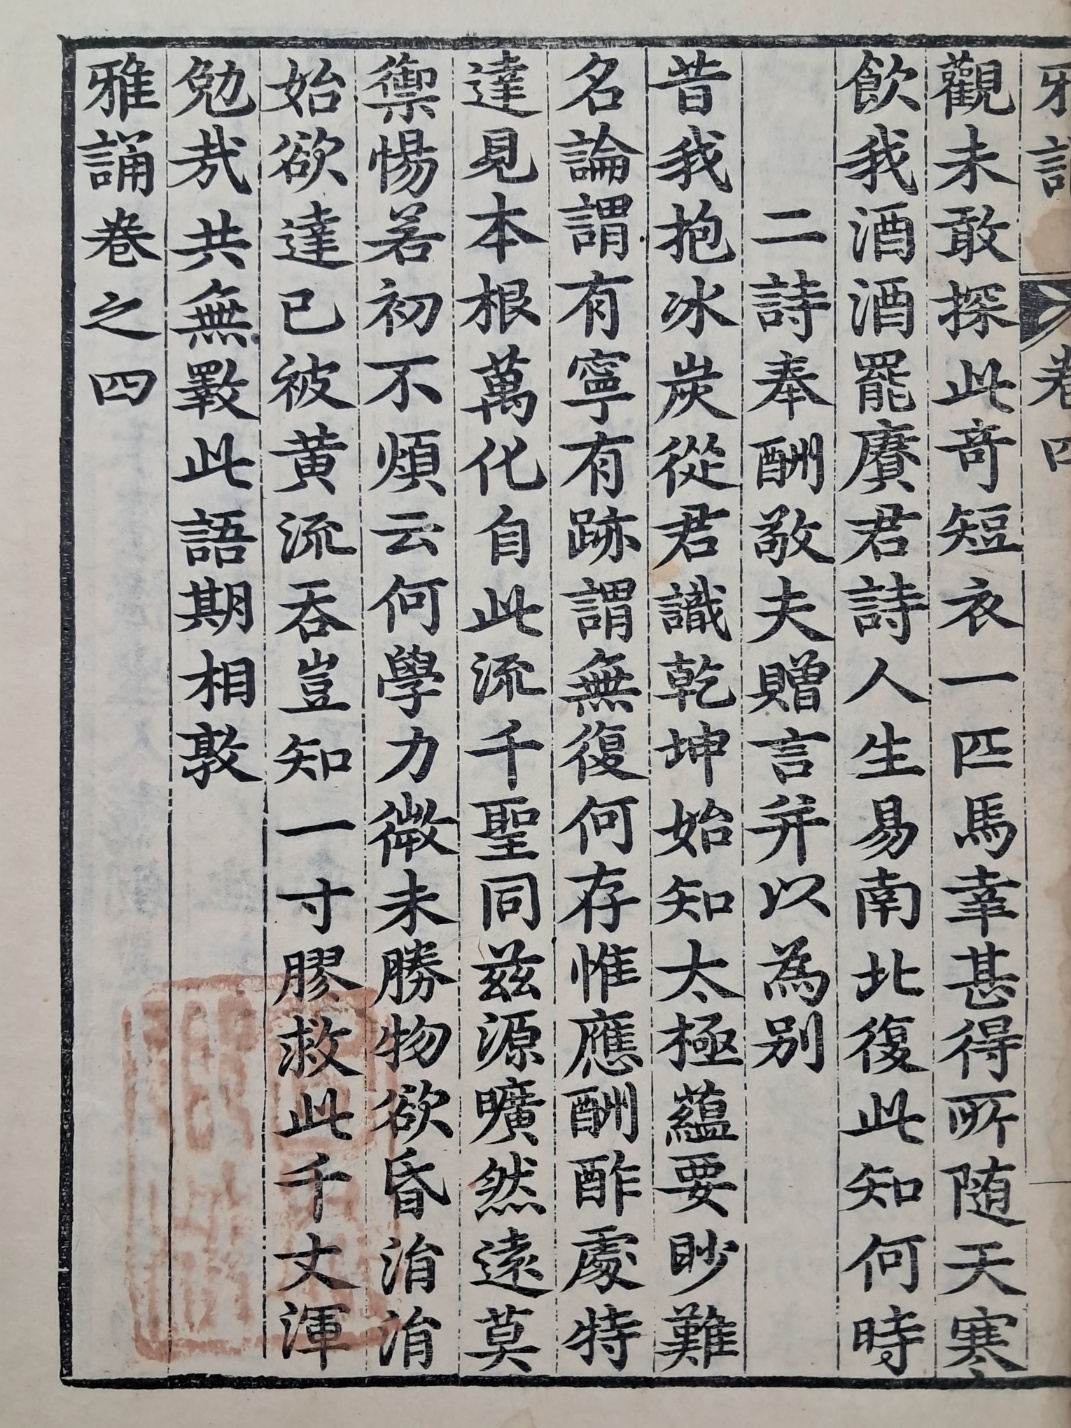 雅誦
卷四
觀未敢探此竒短衣一匹馬幸甚得所随天寒
飲我酒酒罷賡君詩人生易南北復此知何時
二詩奉酬敬夫贈言并以為别
昔我抱冰炭從君識乾坤始知太極蘊要眇難
名論謂有寧有跡謂無復何存惟應酬酢處特
達見本根萬化自此流千聖同兹源曠然遠莫
禦惕若初不煩云何學力微未勝物欲昏涓涓
始欲達已被黄流吞豈知一寸膠救此千丈渾
勉㢤共無斁此語期相敦
雅誦卷之四